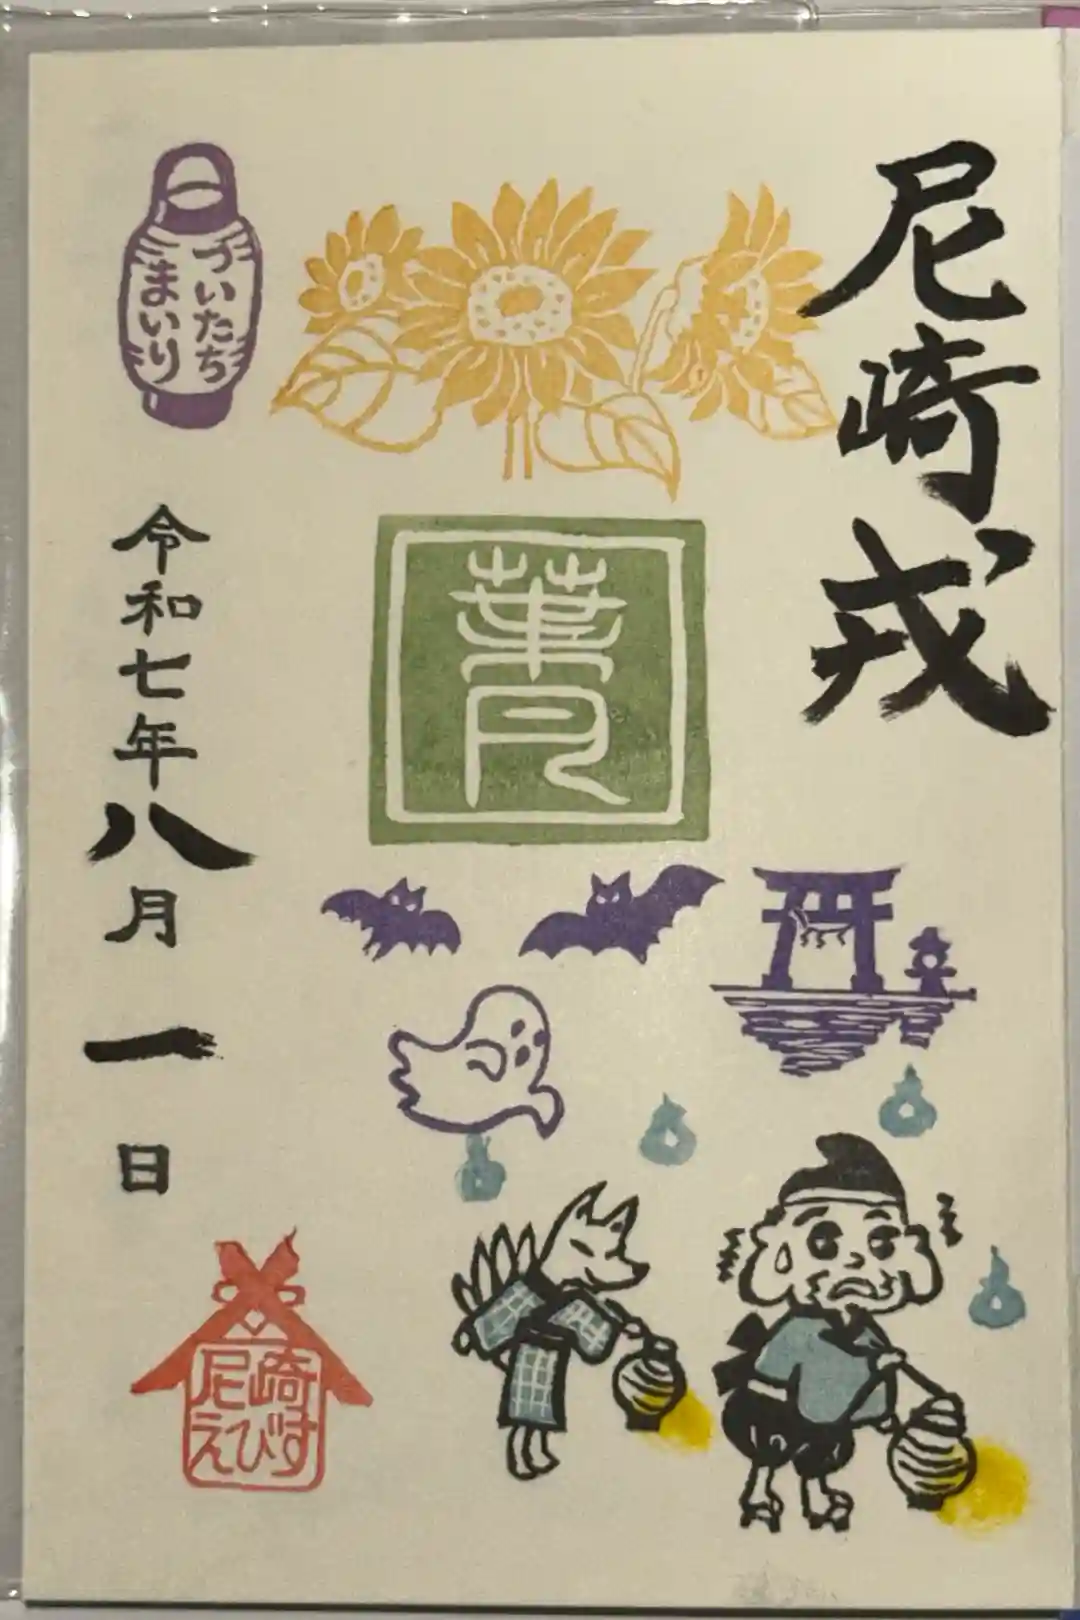 尼崎戎
葉月
づいたち
まいり
令和七年八月一日
尼崎
えびす